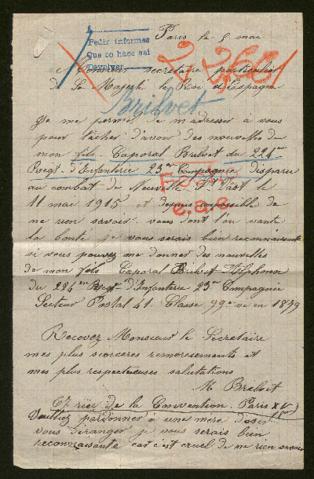 Paris le 5 mai
Pedir informes
Devolver
2260
Monsieur le secretaire particulier
de Sa Majesté le Roi d'Espagne
Brebvet
Je me permet de m'adresser à vous
pour tâcher d'avoir des nouvelles de
mon fils Caporal du 284me
Regt d'Infanterie 23me Compagnie disparu
au combat de Neuville St Vaast le
11 mai 1915 et depuis impossible de
ne rien savoir vous dont l'on vante
la bonté je vous serais bien reconnaissante
si vous pouvez me donner des nouvelles
de mon fils Caporal Alphonse
du 284me Regt d'Infanterie 23me Compagnie
Secteur Postal 41 Classe 99 né en 1879
Recevez Monsieur le Secretaire
mes plus sincères remerciements et
mes plus respectueuses salutations
M
67 rue de la Convention Paris XV
Veuillez pardonner à une mère d'oser
vous déranger je vous serais bien
reconnaissante car c'est cruel de ne rien savoir